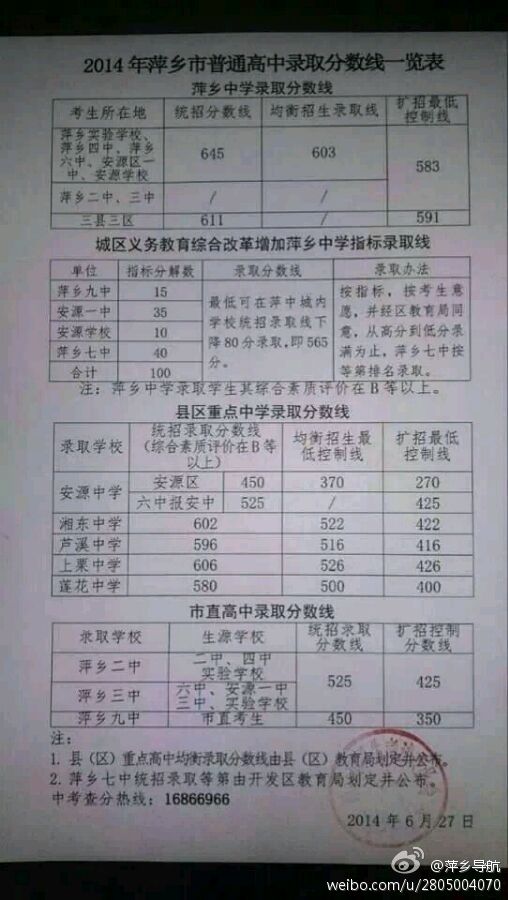 2014年萍乡市普通高中录取分数线一览表
萍乡中学录取分数线
考生所在地 统招分数线 均衡招生录取线 扩招最低控制线
萍乡实验学校、萍乡四中、萍乡六中、安源区一中、安源学校 645 603 583
萍乡二中、三中 / /
三县三区 611 / 591
城区义务教育综合改革增加萍乡中学指标录取线
单位 指标分解数 录取分数线 录取办法
萍乡九中 15
安源一中 35
安源学校 10
萍乡七中 40
合计 100
最低可在萍中城内学校统招录取线下降80分录取,即565分。
按指标,按考生意愿,并经区教育局同意,从高分到低分录满为止,萍乡七中按等第排名录取。
注:萍乡中学录取学生其综合素质评价在B等以上。
县区重点中学录取分数线
录取学校 统招录取分数线(综合素质评价在B等以上) 均衡招生最低控制线 扩招最低控制线
安源中学 安源区 450 370 270
六中报安中 525 / 425
湘东中学 602 522 422
芦溪中学 596 516 416
上栗中学 606 526 426
莲花中学 580 500 400
市直高中录取分数线
录取学校 生源学校 统招录取分数线 扩招控制分数线
萍乡二中 二中、四中 实验学校 525 425
萍乡三中 六中、安源一中 三中、实验学校
萍乡九中 市直考生 450 350
注:
1. 县(区)重点高中均衡录取分数线由县(区)教育局划定并公布。
2. 萍乡七中统招录取等第由开发区教育局划定并公布。
中考查分热线:16866966
2014年6月27日
@萍乡导航
weibo.com/u/2805004070